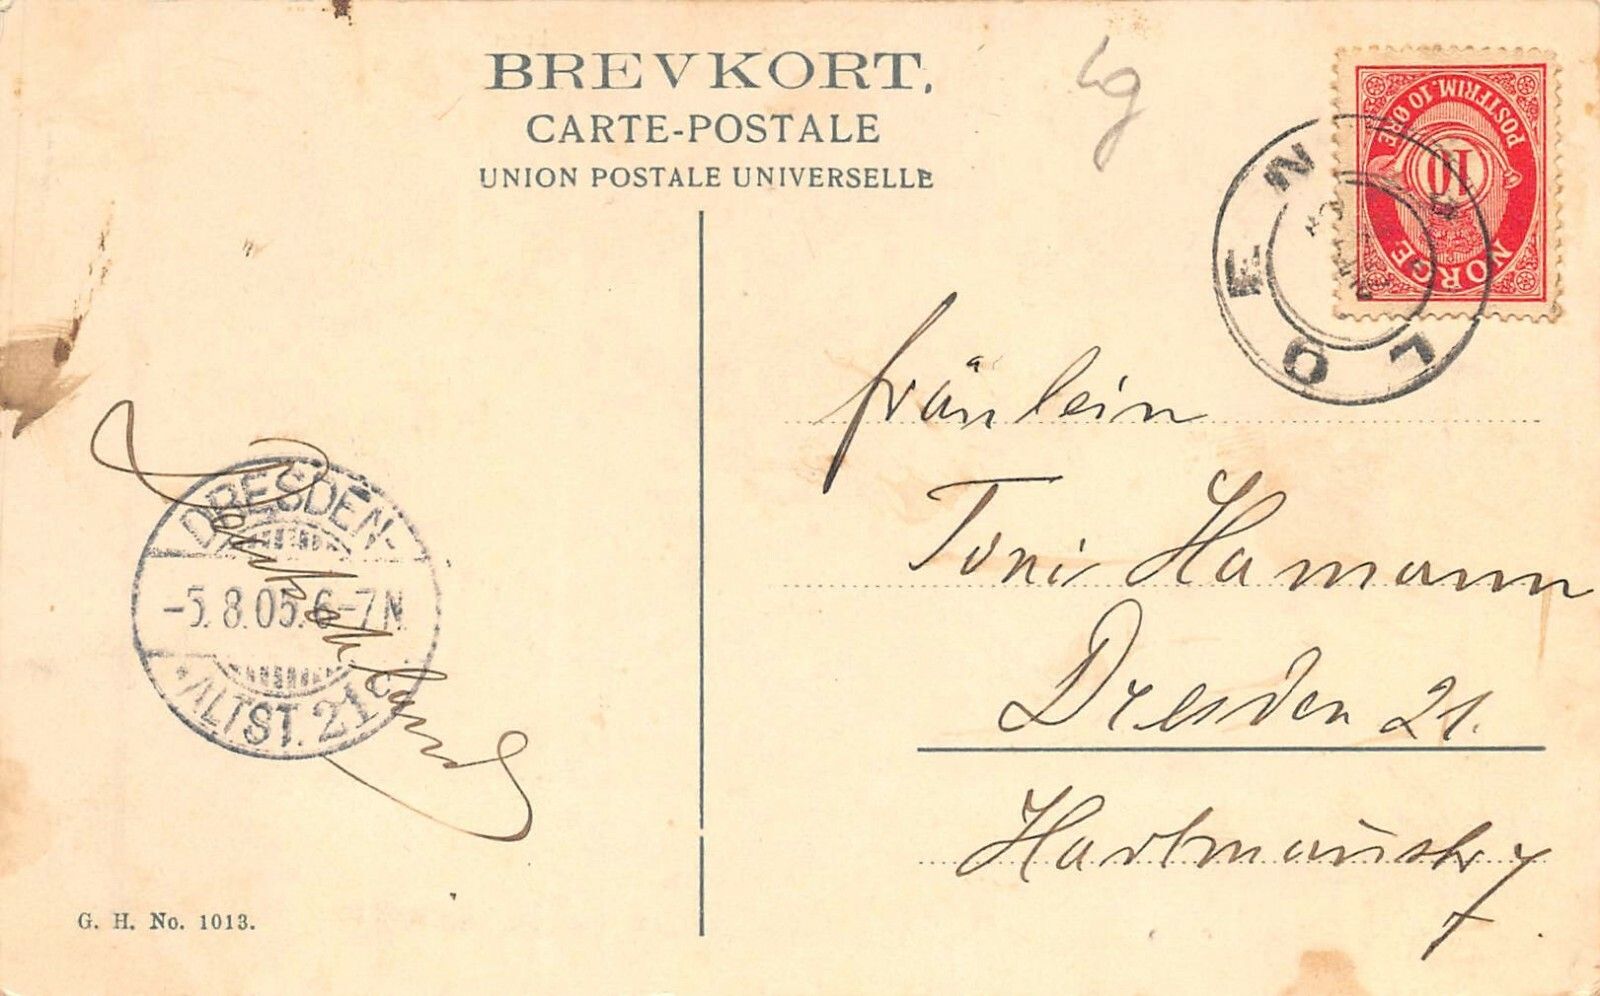 BREVKORT.
CARTE-POSTALE
UNION POSTALE UNIVERSELLE
POSTFRIM. 10 ØRE
10
NORGE
LOEN
DRESDEN-
-5.8.05.6-7N
*ALTST.21c
Fräulein
Toni Hamann
Dresden 21.
7
G. H. No. 1013.